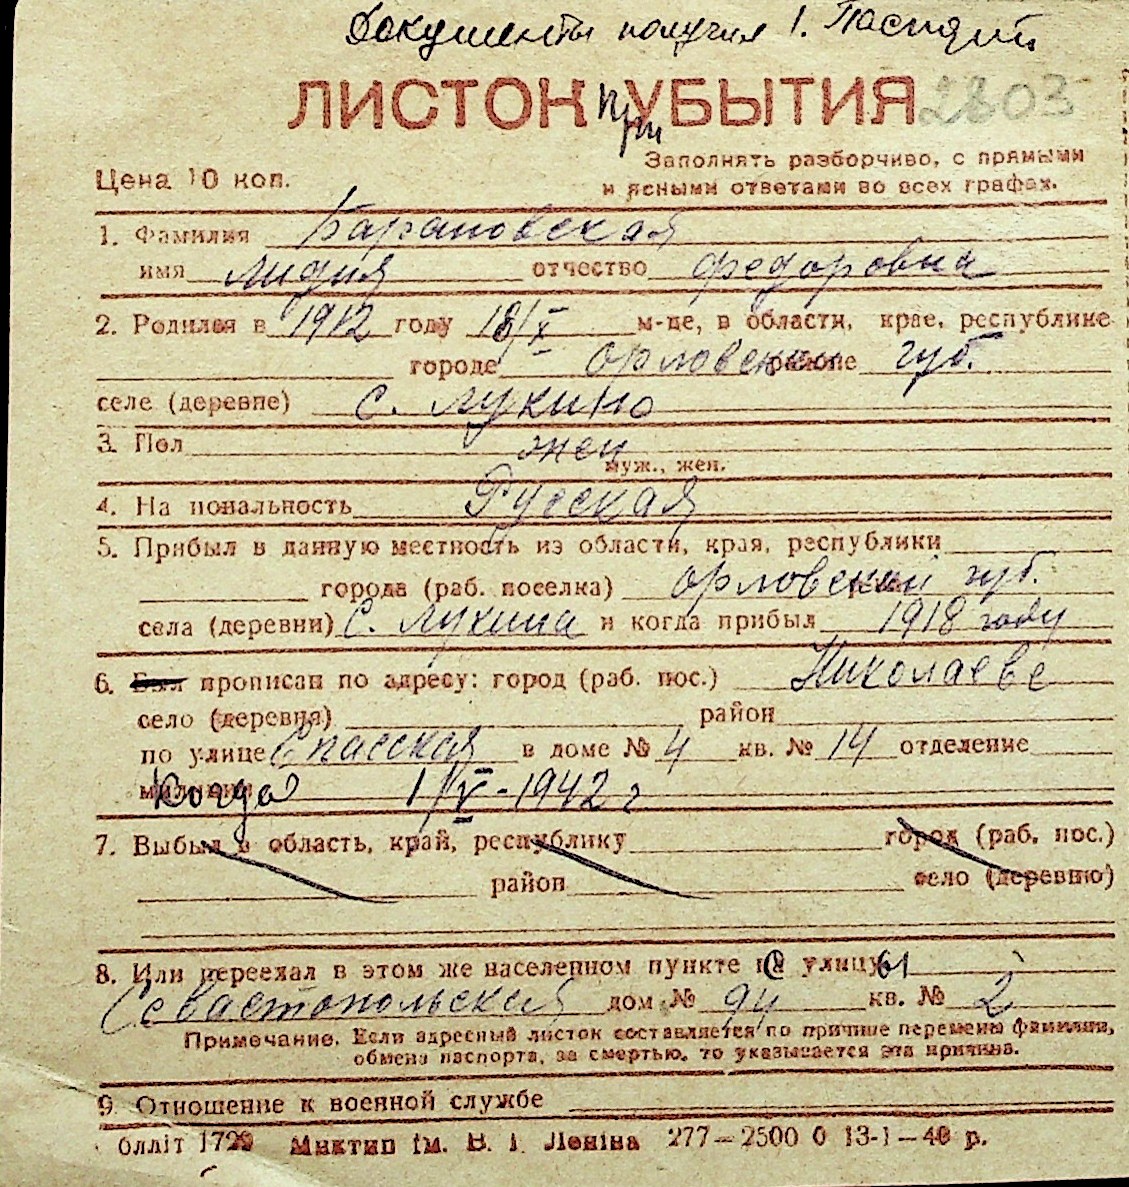 Документы получил 1. Паспорт
ЛИСТОК при УБЫТИЯ 2803
Цена 10 коп.
Заполнять разборчиво, с прямыми
и ясными ответами во всех графах.
1. Фамилия Барановская
имя Лидия отчество Федоровна
2. Родился в 1912 году 18/X м-це, в области, крае, республике
городе Орловской районе губ.
селе (деревне) с. Лукино
3. Пол жен
муж., жен.
4. Национальность Русская
5. Прибыл в данную местность из области, края, республики
города (раб. поселка) Орловский губ.
села (деревни) С. Лукина и когда прибыл 1918 году
6. Был прописан по адресу: город (раб. пос.) Николаеве
село (деревня) район
по улице Спасская в доме № 4 кв. № 14 отделение
милиции Когда 1/V-1942 г
7. Выбыл в область, край, республику город (раб. пос.)
район село (деревню)
8. Или переехал в этом же населенном пункте на С улицу ы
Севастопольская дом № 94 кв. № 2
Примечание. Если адресный листок составляется по причине перемены фамилии,
обмена паспорта, за смертью, то указывается эта причина.
9. Отношение к военной службе
блліт 1729 Миктип ім. В. І. Леніна 277—2500 0 13-1—40 р.